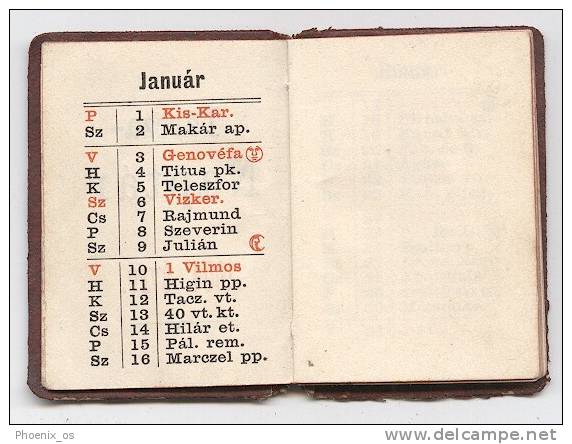 Január
P 1 Kis-Kar.
Sz 2 Makár ap.
V 3 Genovéfa
H 4 Titus pk.
K 5 Teleszfor
Sz 6 Vizker.
Cs 7 Rajmund
P 8 Szeverin
Sz 9 Julián
V 10 1 Vilmos
H 11 Higin pp.
K 12 Tacz. vt.
Sz 13 40 vt. kt.
Cs 14 Hilár et.
P 15 Pál. rem.
Sz 16 Marczel pp.
Phoenix_os
delcampe.net